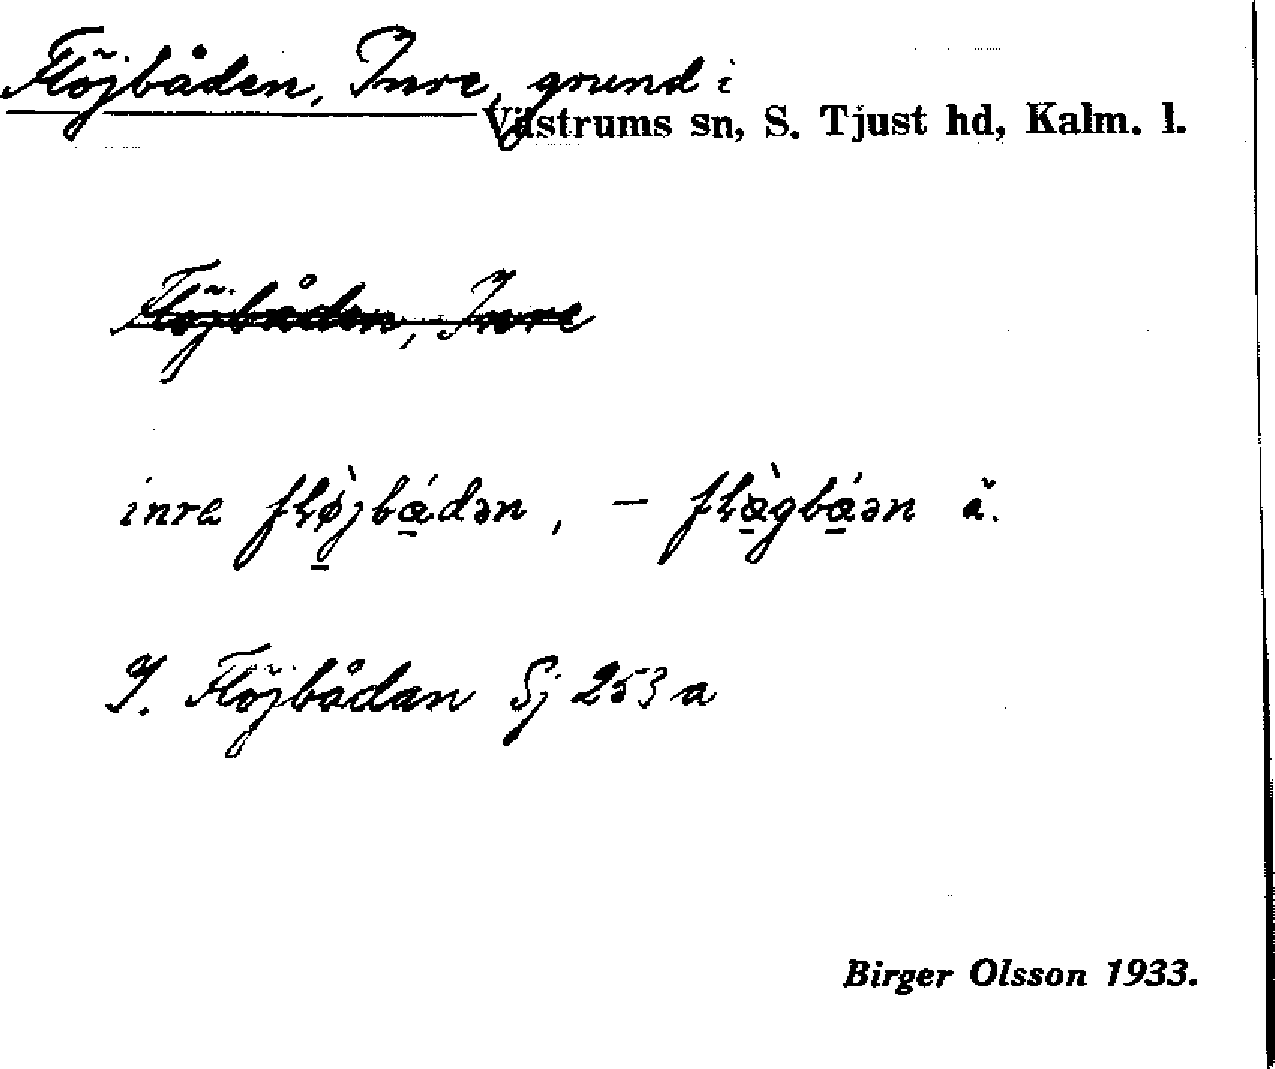 Flöjbåden, Inre, grund i
Västrums sn, S. Tjust hd, Kalm. l.
Flöjbåden, Inre
inra fłø̀jbádən, – fłàgbáən ä.
I. Flöjbådan Sj 253 a
Birger Olsson 1933.